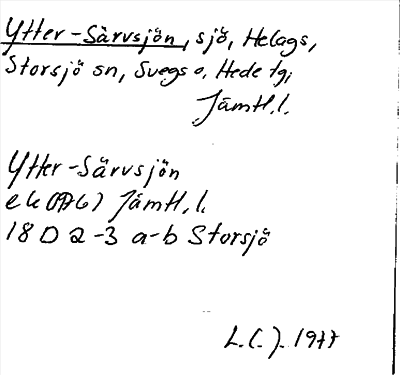 Ytter-Särvsjön, sjö, Helags,
Storsjö sn, Svegs o. Hede tg;
Jämtl. l.
Ytter-Särvsjön
ek (1976) Jämtl. l.
18 D 2-3 a-b Storsjö
L.C.J. 1977